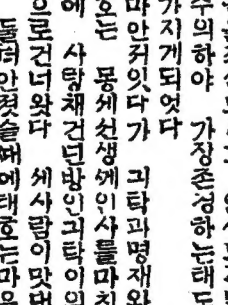 주의하야 가장존경하는태도
가지게되엿다
마안저잇다가 긔탁과명재와
호는 몽세선생께인사를마치
에 사랑채건넌방인긔탁이의
으로건너왓다 세사람이맛대
둘러안젓슬때에태호는마음